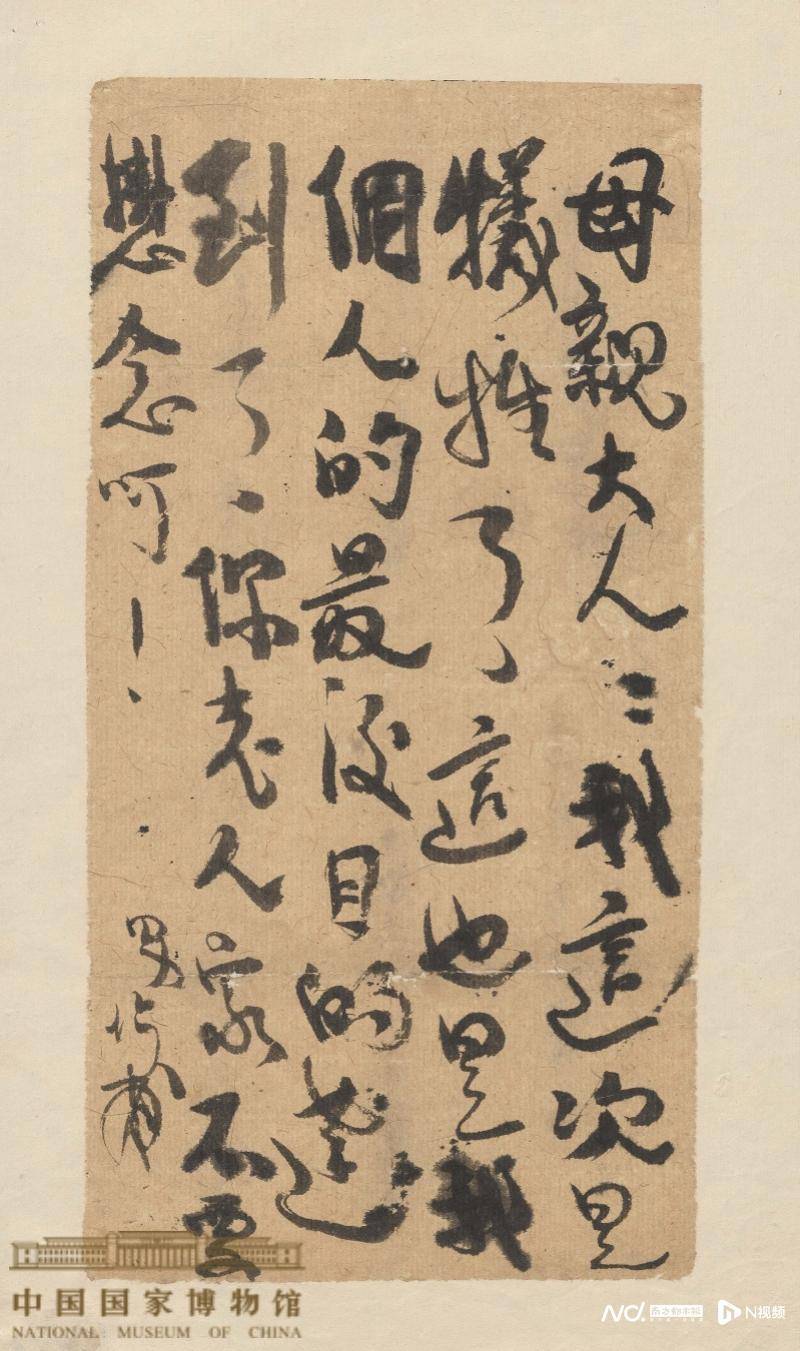 母親大人:我這次是
犧牲了、這也是我
個人的最後目的達
到了、你老人家不要
懸念呵!、
中国国家博物馆
NATIONAL MUSEUM OF CHINA
N视频